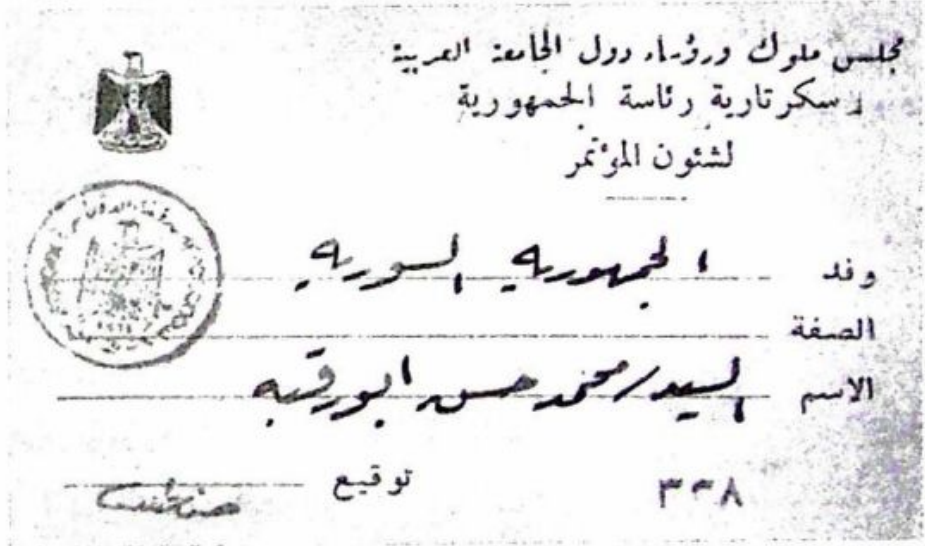 مجلس ملوك ورؤساء دول الجامعة العربية
سكرتارية رئاسة الجمهورية
لشئون المؤتمر
وفد الجمهورية السورية
الصفة
الاسم السيد / محمد حسن ابو رقبه
٣٣٨ توقيع